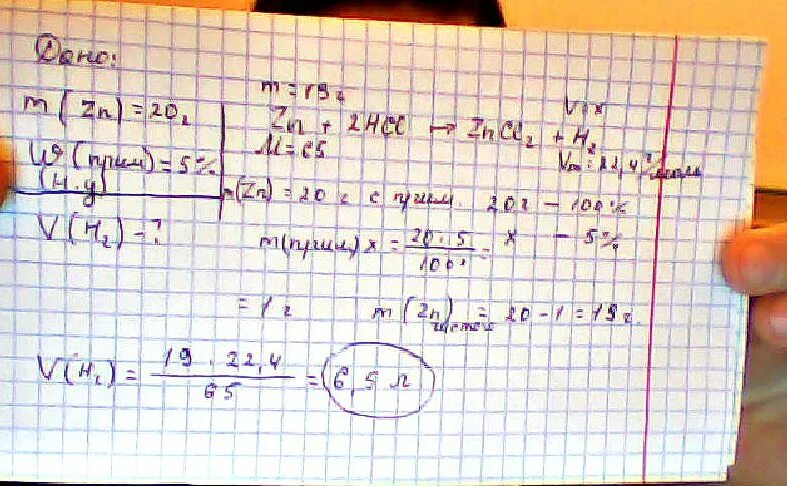 Дано:
m(Zn) = 20г
ω(прим) = 5%
(н.у)
V(H₂) - ?
m = 19г
V = x
Zn + 2HCl → ZnCl₂ + H₂
M = 65
Vm = 22,4 л/моль
m(Zn) = 20 г с прим. 20г - 100%
m(прим) x = 20 · 5 / 100% = x - 5%
= 1 г m(Zn) чистого = 20 - 1 = 19г.
V(H₂) = 19 · 22,4 / 65 = 6,5 л